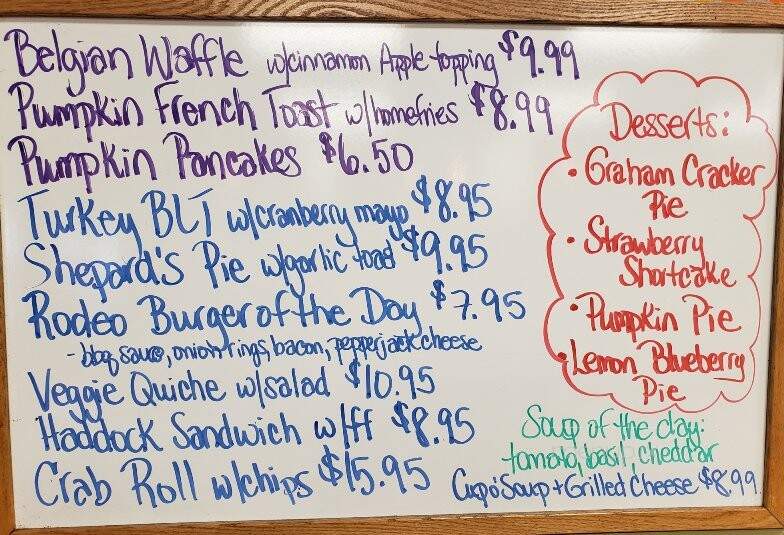 Belgian Waffle w/cinnamon Apple topping $9.99
Pumpkin French Toast w/homefries $8.99
Pumpkin Pancakes $6.50
Turkey BLT w/cranberry mayo $8.95
Shepard's Pie w/garlic toast $9.95
Rodeo Burger of the Day $7.95
- bbq sauce, onion rings, bacon, pepperjack cheese
Veggie Quiche w/salad $10.95
Haddock Sandwich w/ff $8.95
Crab Roll w/chips $15.95
Desserts:
• Graham Cracker
Pie
• Strawberry
Shortcake
• Pumpkin Pie
• Lemon Blueberry
Pie
Soup of the day:
tomato, basil, cheddar
Cup o' Soup + Grilled Cheese $8.99